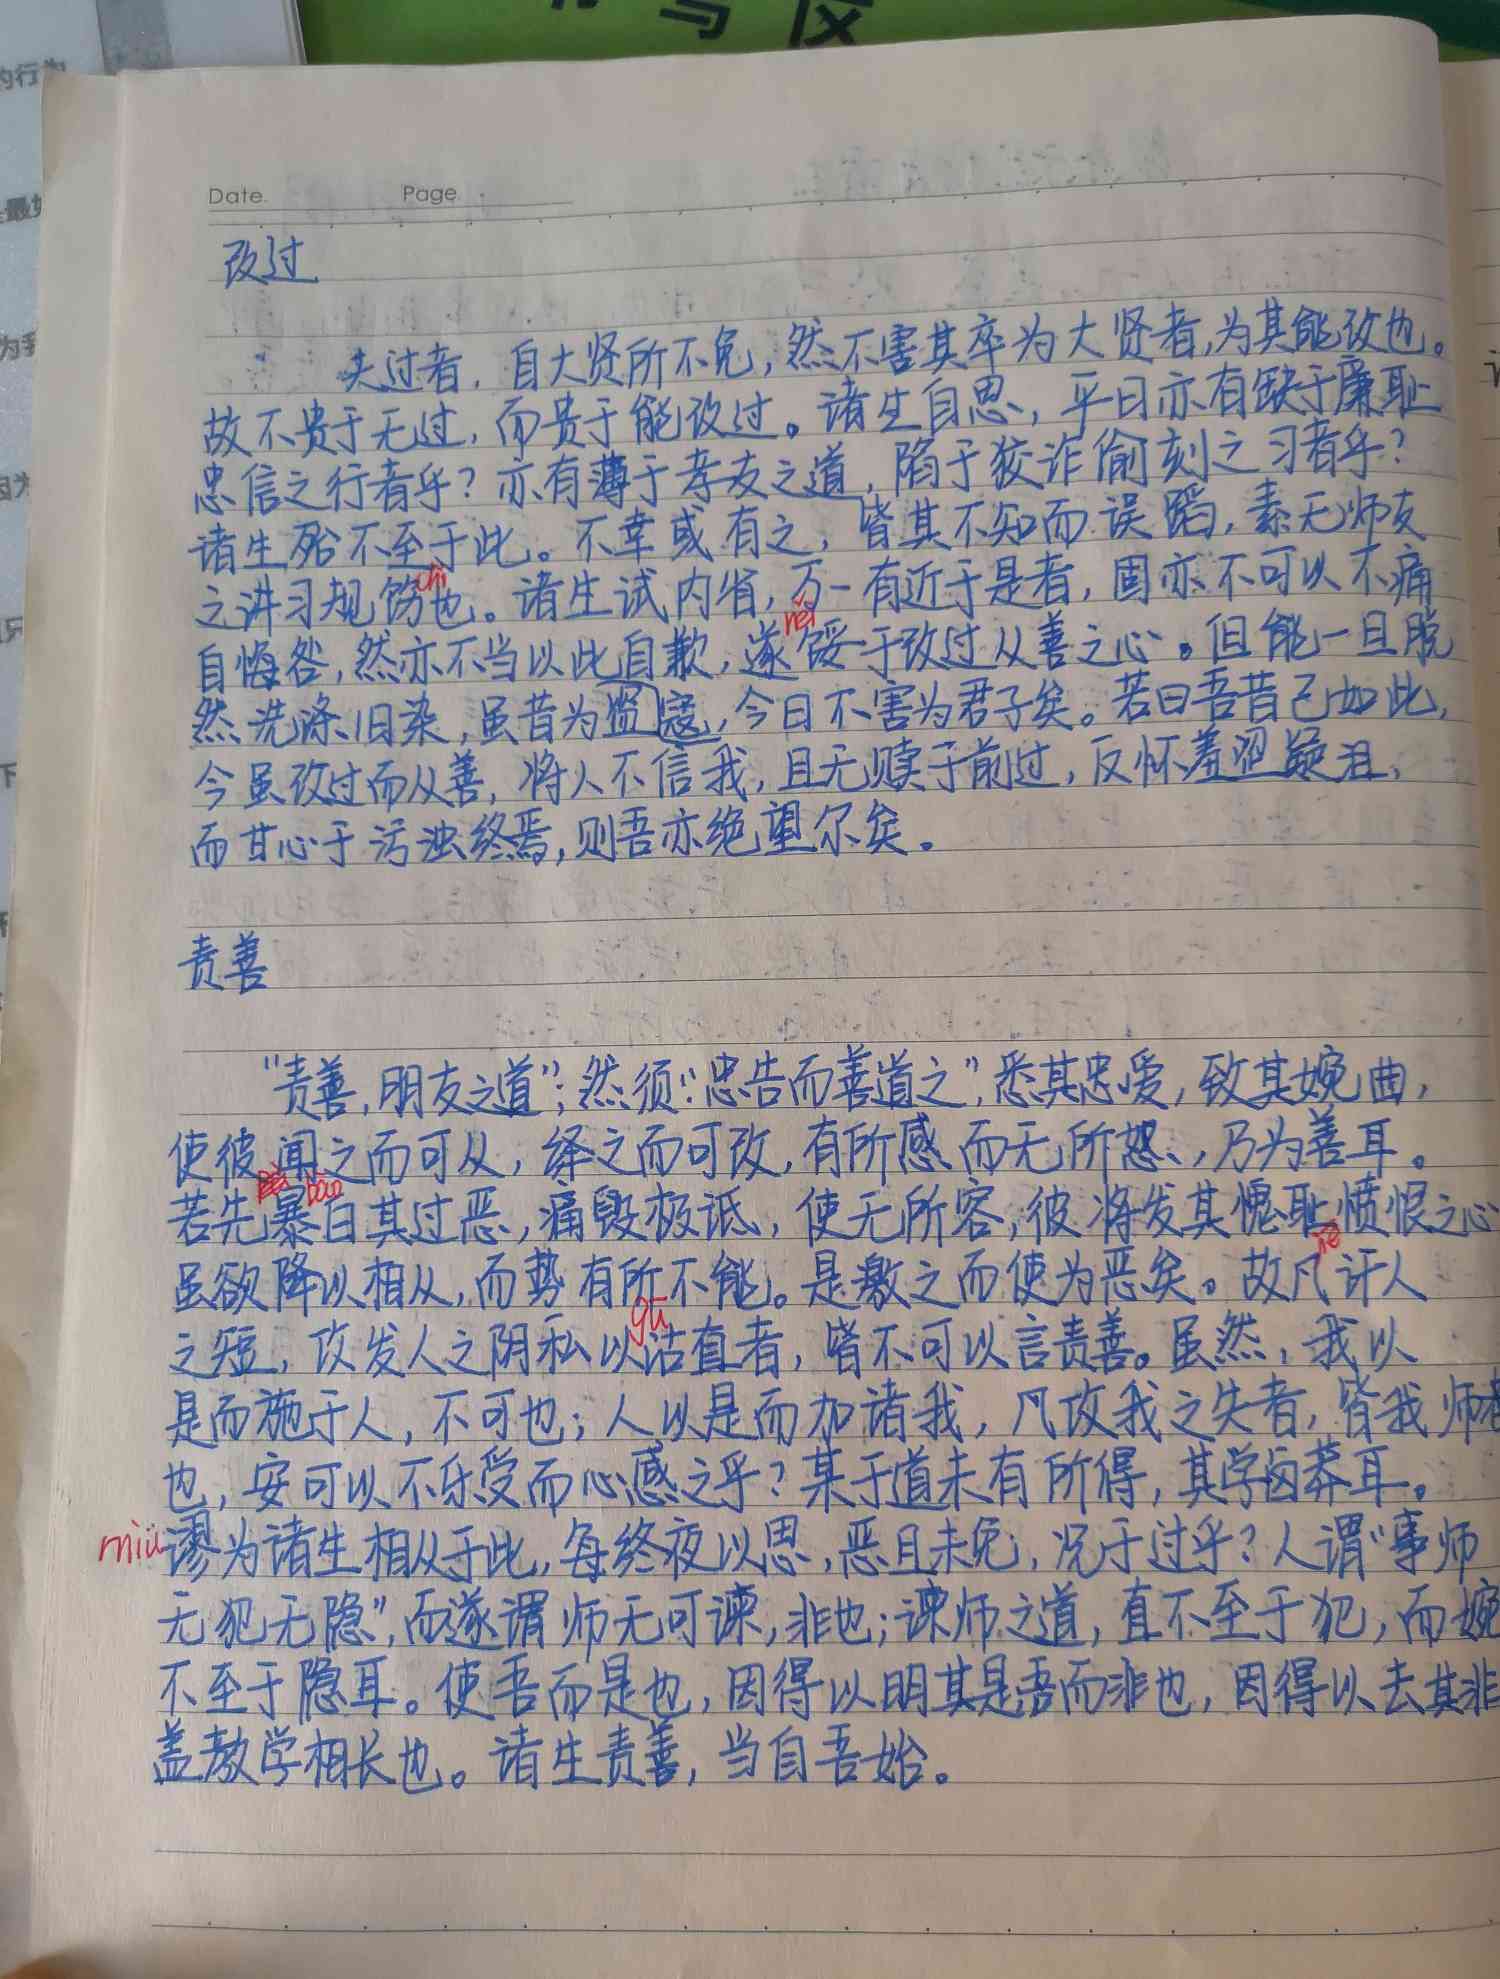 的行为
最
为我
因为
只
下
写反
Date. Page.
改过
夫过者，自大贤所不免，然不害其卒为大贤者，为其能改也。
故不贵于无过，而贵于能改过。诸生自思，平日亦有缺于廉耻
忠信之行者乎？亦有薄于孝友之道，陷于狡诈偷刻之习者乎？
诸生殆不至于此。不幸或有之，皆其不知而误蹈，素无师友
之讲习规饬也。诸生试内省，万一有近于是者，固亦不可以不痛
chi
něi
自悔咎，然亦不当以此自歉，遂馁于改过从善之心。但能一旦脱
然洗涤旧染，虽昔为盗寇，今日不害为君子矣。若曰吾昔已如此，
今虽改过而从善，将人不信我，且无赎于前过，反怀羞涩疑沮，
而甘心于污浊终焉，则吾亦绝望尔矣。
责善
“责善，朋友之道”；然须“忠告而善道之”，悉其忠爱，致其婉曲，
使彼闻之而可从，绎之而可改，有所感而无所怒，乃为善耳。
bào
若先暴白其过恶，痛毁极诋，使无所容，彼将发其愧耻愤恨之心
jié
虽欲降以相从，而势有所不能。是激之而使为恶矣。故凡讦人
gū
之短，攻发人之阴私以沽直者，皆不可以言责善。虽然，我以
是而施于人，不可也；人以是而加诸我，凡攻我之失者，皆我师者
也，安可以不乐受而心感之乎？某于道未有所得，其学卤莽耳。
miù 谬为诸生相从于此，每终夜以思，恶且未免，况于过乎？人谓“事师
无犯无隐”，而遂谓师无可谏，非也；谏师之道，直不至于犯，而婉
不至于隐耳。使吾而是也，因得以明其是吾而非也，因得以去其非
盖教学相长也。诸生责善，当自吾始。